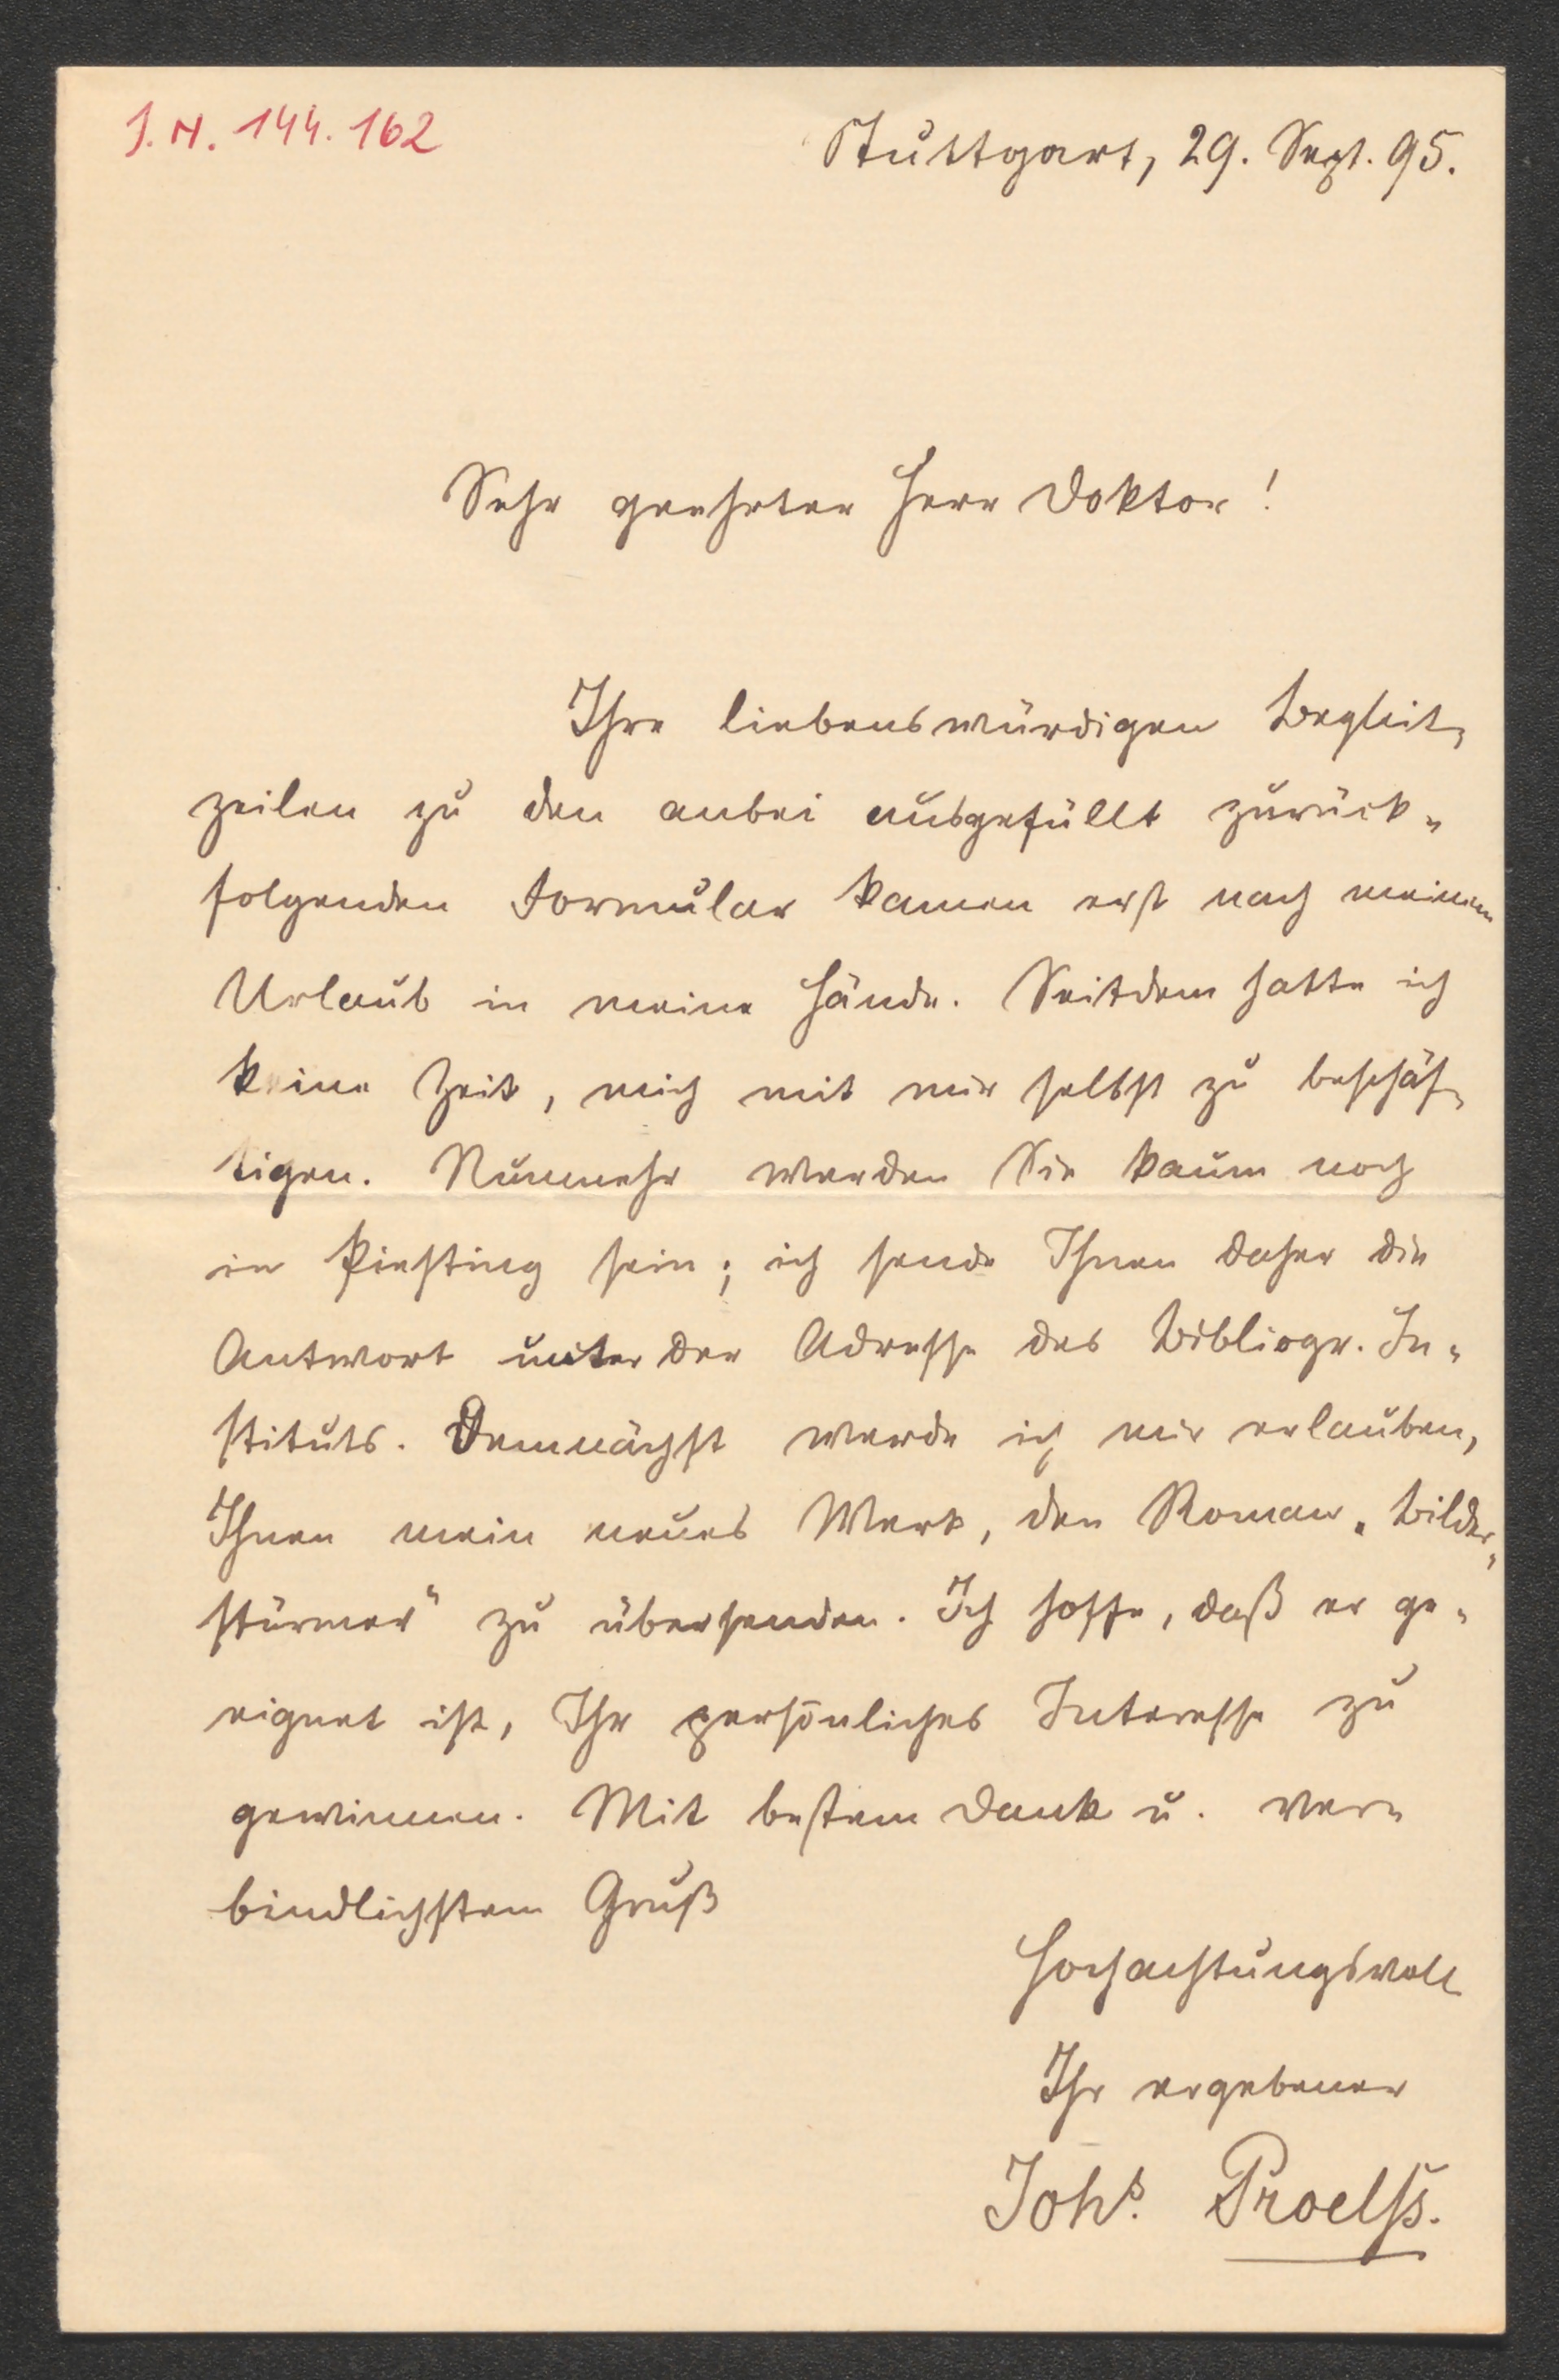 J.N. 144.162
Stuttgart, 29. Sept. 95.
Sehr geehrter Herr Doktor!
Ihre liebenswürdigen Begleit-
zeilen zu den anbei ausgefüllt zurück-
folgenden Formular kamen erst nach meinem
Urlaub in meine Hände. Seitdem hatte ich
keine Zeit, mich mit mir selbst zu beschäf-
tigen. Nunmehr werden Sie kaum noch
in Piesting sein; ich sende Ihnen daher die
Antwort unter der Adresse des Bibliogr. In-
stituts. Demnächst werde ich mir erlauben,
Ihnen mein neues Werk, den Roman „Bilder-
stürmer" zu übersenden. Ich hoffe, daß er ge-
eignet ist, Ihr persönliches Interesse zu
gewinnen. Mit bestem Dank u. ver-
bindlichstem Gruß
Hochachtungsvoll
Ihr ergebener
Johs. Proelß.